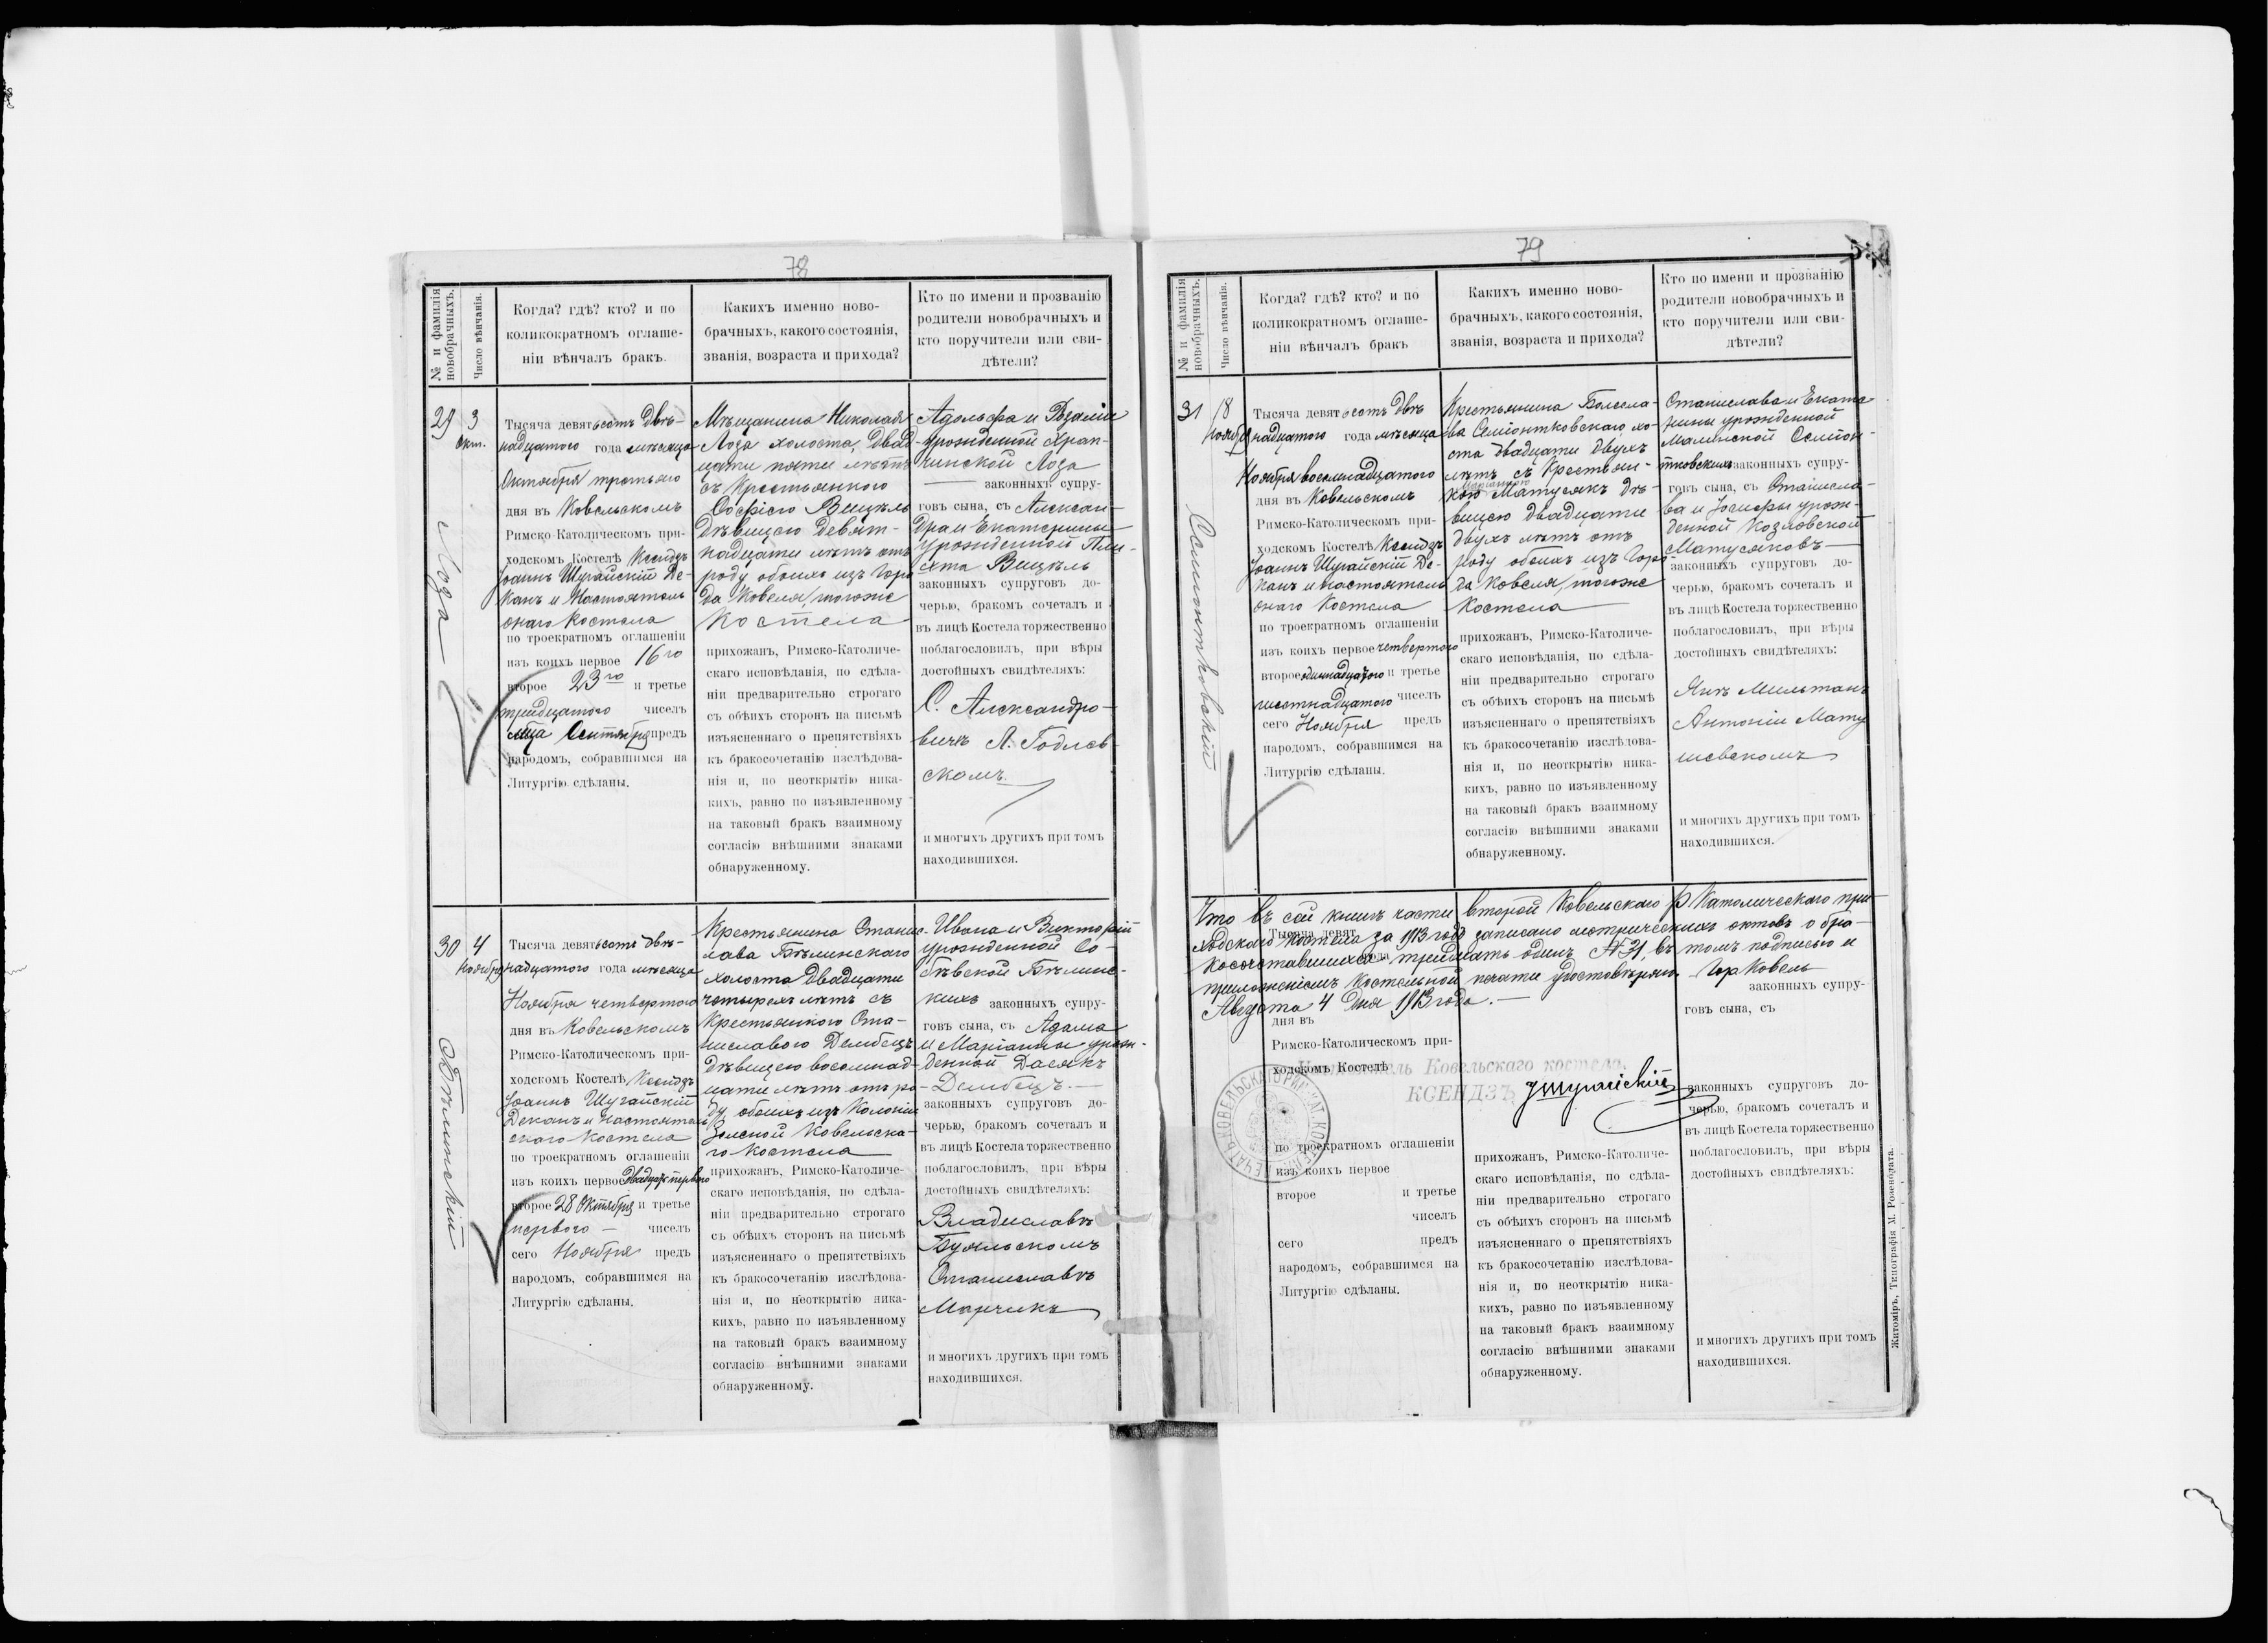 78
№ и фамилія новобрачныхъ.
Число вѣнчанія.
Когда? гдѣ? кто? и по
коликократномъ оглаше-
ніи вѣнчалъ бракъ.
Какихъ именно ново-
брачныхъ, какого состоянія,
званія, возраста и прихода?
Кто по имени и прозванію
родители новобрачныхъ и
кто поручители или сви-
дѣтели?
29
Лоза
3
Окт.
Тысяча девятьсотъ двѣ-
надцатого года мѣсяца
Октября третьяго
дня въ Ковельскомъ
Римско-Католическомъ при-
ходскомъ Костелѣ Ксендзъ
Іоаннъ Шугайскій Де-
канъ и Настоятель
онаго Костела
по троекратномъ оглашеніи
изъ коихъ первое 16го
второе 23го и третье
тридцатого чиселъ
м-ца Сентября предъ
народомъ, собравшимся на
Литургію сдѣланы.
Мѣщанина Николая
Лоза холоста, двад-
цати пяти лѣтъ
съ Крестьянкого
Софіею Вицѣль
дѣвицею девят-
надцати лѣтъ отъ
роду, обоихъ изъ Горо
да Ковеля, тогоже
Костела
прихожанъ, Римско-Католиче-
скаго исповѣданія, по сдѣла-
ніи предварительно строгаго
съ обѣихъ сторонъ на письмѣ
изъясненнаго о препятствіяхъ
къ бракосочетанію изслѣдова-
нія и, по неоткрытію ника-
кихъ, равно по изъявленному
на таковый бракъ взаимному
согласію внѣшними знаками
обнаруженному.
Адольфа и Розаліи
урожденной Храп-
чинской Лоза
законныхъ супру-
говъ сына, съ Алексан-
дра и Екатерины
урожденной
Вицѣль
законныхъ супруговъ до-
черью, бракомъ сочеталъ и
въ лицѣ Костела торжественно
поблагословилъ, при вѣры
достойныхъ свидѣтеляхъ:
С. Александро-
вичъ А. Годлев-
скомъ
и многихъ другихъ при томъ
находившихся.
30
Бѣлинскій
4
Ноября
Тысяча девятьсотъ двѣ-
надцатого года мѣсяца
Ноября четвертого
дня въ Ковельскомъ
Римско-Католическомъ при-
ходскомъ Костелѣ Ксендзъ
Іоаннъ Шугайскій
Деканъ и настоятель
онаго Костела
по троекратномъ оглашеніи
изъ коихъ первое двадцать первого
второе 28 Октября и третье
первого чиселъ
сего Ноября предъ
народомъ, собравшимся на
Литургію сдѣланы.
Крестьянина Станис-
лава Бѣлинскаго
холоста двадцати
четырехъ лѣтъ съ
Крестьянкого Ста-
ниславого Дембецъ
дѣвицею восемнад-
цати лѣтъ отъ ро
ду, обоихъ изъ Колоніи
Зеленой Ковельска-
го Костела
прихожанъ, Римско-Католиче-
скаго исповѣданія, по сдѣла-
ніи предварительно строгаго
съ обѣихъ сторонъ на письмѣ
изъясненнаго о препятствіяхъ
къ бракосочетанію изслѣдова-
нія и, по неоткрытію ника-
кихъ, равно по изъявленному
на таковый бракъ взаимному
согласію внѣшними знаками
обнаруженному.
Ивана и Викторіи
урожденной Со-
бѣвской Бѣлинс-
кихъ законныхъ супру-
говъ сына, съ Адама
и Маріанны урож-
денной Дасякъ
Дембецъ.
законныхъ супруговъ до-
черью, бракомъ сочеталъ и
въ лицѣ Костела торжественно
поблагословилъ, при вѣры
достойныхъ свидѣтеляхъ:
Владиславъ
Буяльскомъ
Станиславъ
Марчикъ
и многихъ другихъ при томъ
находившихся.
79
№ и фамилія новобрачныхъ.
Число вѣнчанія.
Когда? гдѣ? кто? и по
коликократномъ оглаше-
ніи вѣнчалъ бракъ
Какихъ именно ново-
брачныхъ, какого состоянія,
званія, возраста и прихода?
Кто по имени и прозванію
родители новобрачныхъ и
кто поручители или сви-
дѣтели?
31
18
Ноября
Тысяча девятьсотъ двѣ
надцатого года мѣсяца
Ноября восемнадцатого
дня въ Ковельскомъ
Римско-Католическомъ при-
ходскомъ Костелѣ Ксендзъ
Іоаннъ Шугайскій Де-
канъ и настоятель
онаго Костела
по троекратномъ оглашеніи
изъ коихъ первое четвертого
второе одиннадцатого и третье
шестнадцатого чиселъ
сего Ноября предъ
народомъ, собравшимся на
Литургію сдѣланы.
Крестьянина Болесла-
ва Семіонтковскаго хо-
ста двадцати двухъ
лѣтъ съ Крестьян-
Маріанною
кою Матусякъ дѣ-
вицею двадцати
двухъ лѣтъ отъ
роду обоихъ изъ Горо
да Ковеля, тогоже
Костела
прихожанъ, Римско-Католиче-
скаго исповѣданія, по сдѣла-
ніи предварительно строгаго
съ обѣихъ сторонъ на письмѣ
изъясненнаго о препятствіяхъ
къ бракосочетанію изслѣдова-
нія и, по неоткрытію ника-
кихъ, равно по изъявленному
на таковый бракъ взаимному
согласію внѣшними знаками
обнаруженному.
Станислава и Екате
рины урожденной
Малинской Семіон-
тковскихъ законныхъ супру-
говъ сына, съ Станисла-
ва и Іосифы урож-
денной Козловской
Матусяковъ
законныхъ супруговъ до-
черью, бракомъ сочеталъ и
въ лицѣ Костела торжественно
поблагословилъ, при вѣры
достойныхъ свидѣтеляхъ:
Янъ Мильтанъ
Антоніи Мату
шевскомъ
и многихъ другихъ при томъ
находившихся.
Что въ сей книгѣ части второй Ковельскаго Р Католическаго при-
ходскаго Костела за 1913 годъ записано метрическихъ актовъ о бра-
косочетавшихся тридцать одинъ № 31, въ томъ подписью и
приложеніемъ костельной печати удостовѣряю. Гор Ковель
Августа 4 дня 1913 года.
Тысяча девят
законныхъ супру-
говъ сына, съ
дня въ
Римско-Католическомъ при-
ходскомъ Костелѣ
Настоятель Ковельскаго костела,
КСЕНДЗЪ
по троекратномъ оглашеніи
изъ коихъ первое
второе и третье
чиселъ
сего предъ
народомъ, собравшимся на
Литургію сдѣланы.
прихожанъ, Римско-Католиче-
скаго исповѣданія, по сдѣла-
ніи предварительно строгаго
съ обѣихъ сторонъ на письмѣ
изъясненнаго о препятствіяхъ
къ бракосочетанію изслѣдова-
нія и, по неоткрытію ника-
кихъ, равно по изъявленному
на таковый бракъ взаимному
согласію внѣшними знаками
обнаруженному.
законныхъ супруговъ до-
черью, бракомъ сочеталъ и
въ лицѣ Костела торжественно
поблагословилъ, при вѣры
достойныхъ свидѣтеляхъ:
и многихъ другихъ при томъ
находившихся.
Житоміръ, Типографія М. Розенблата.